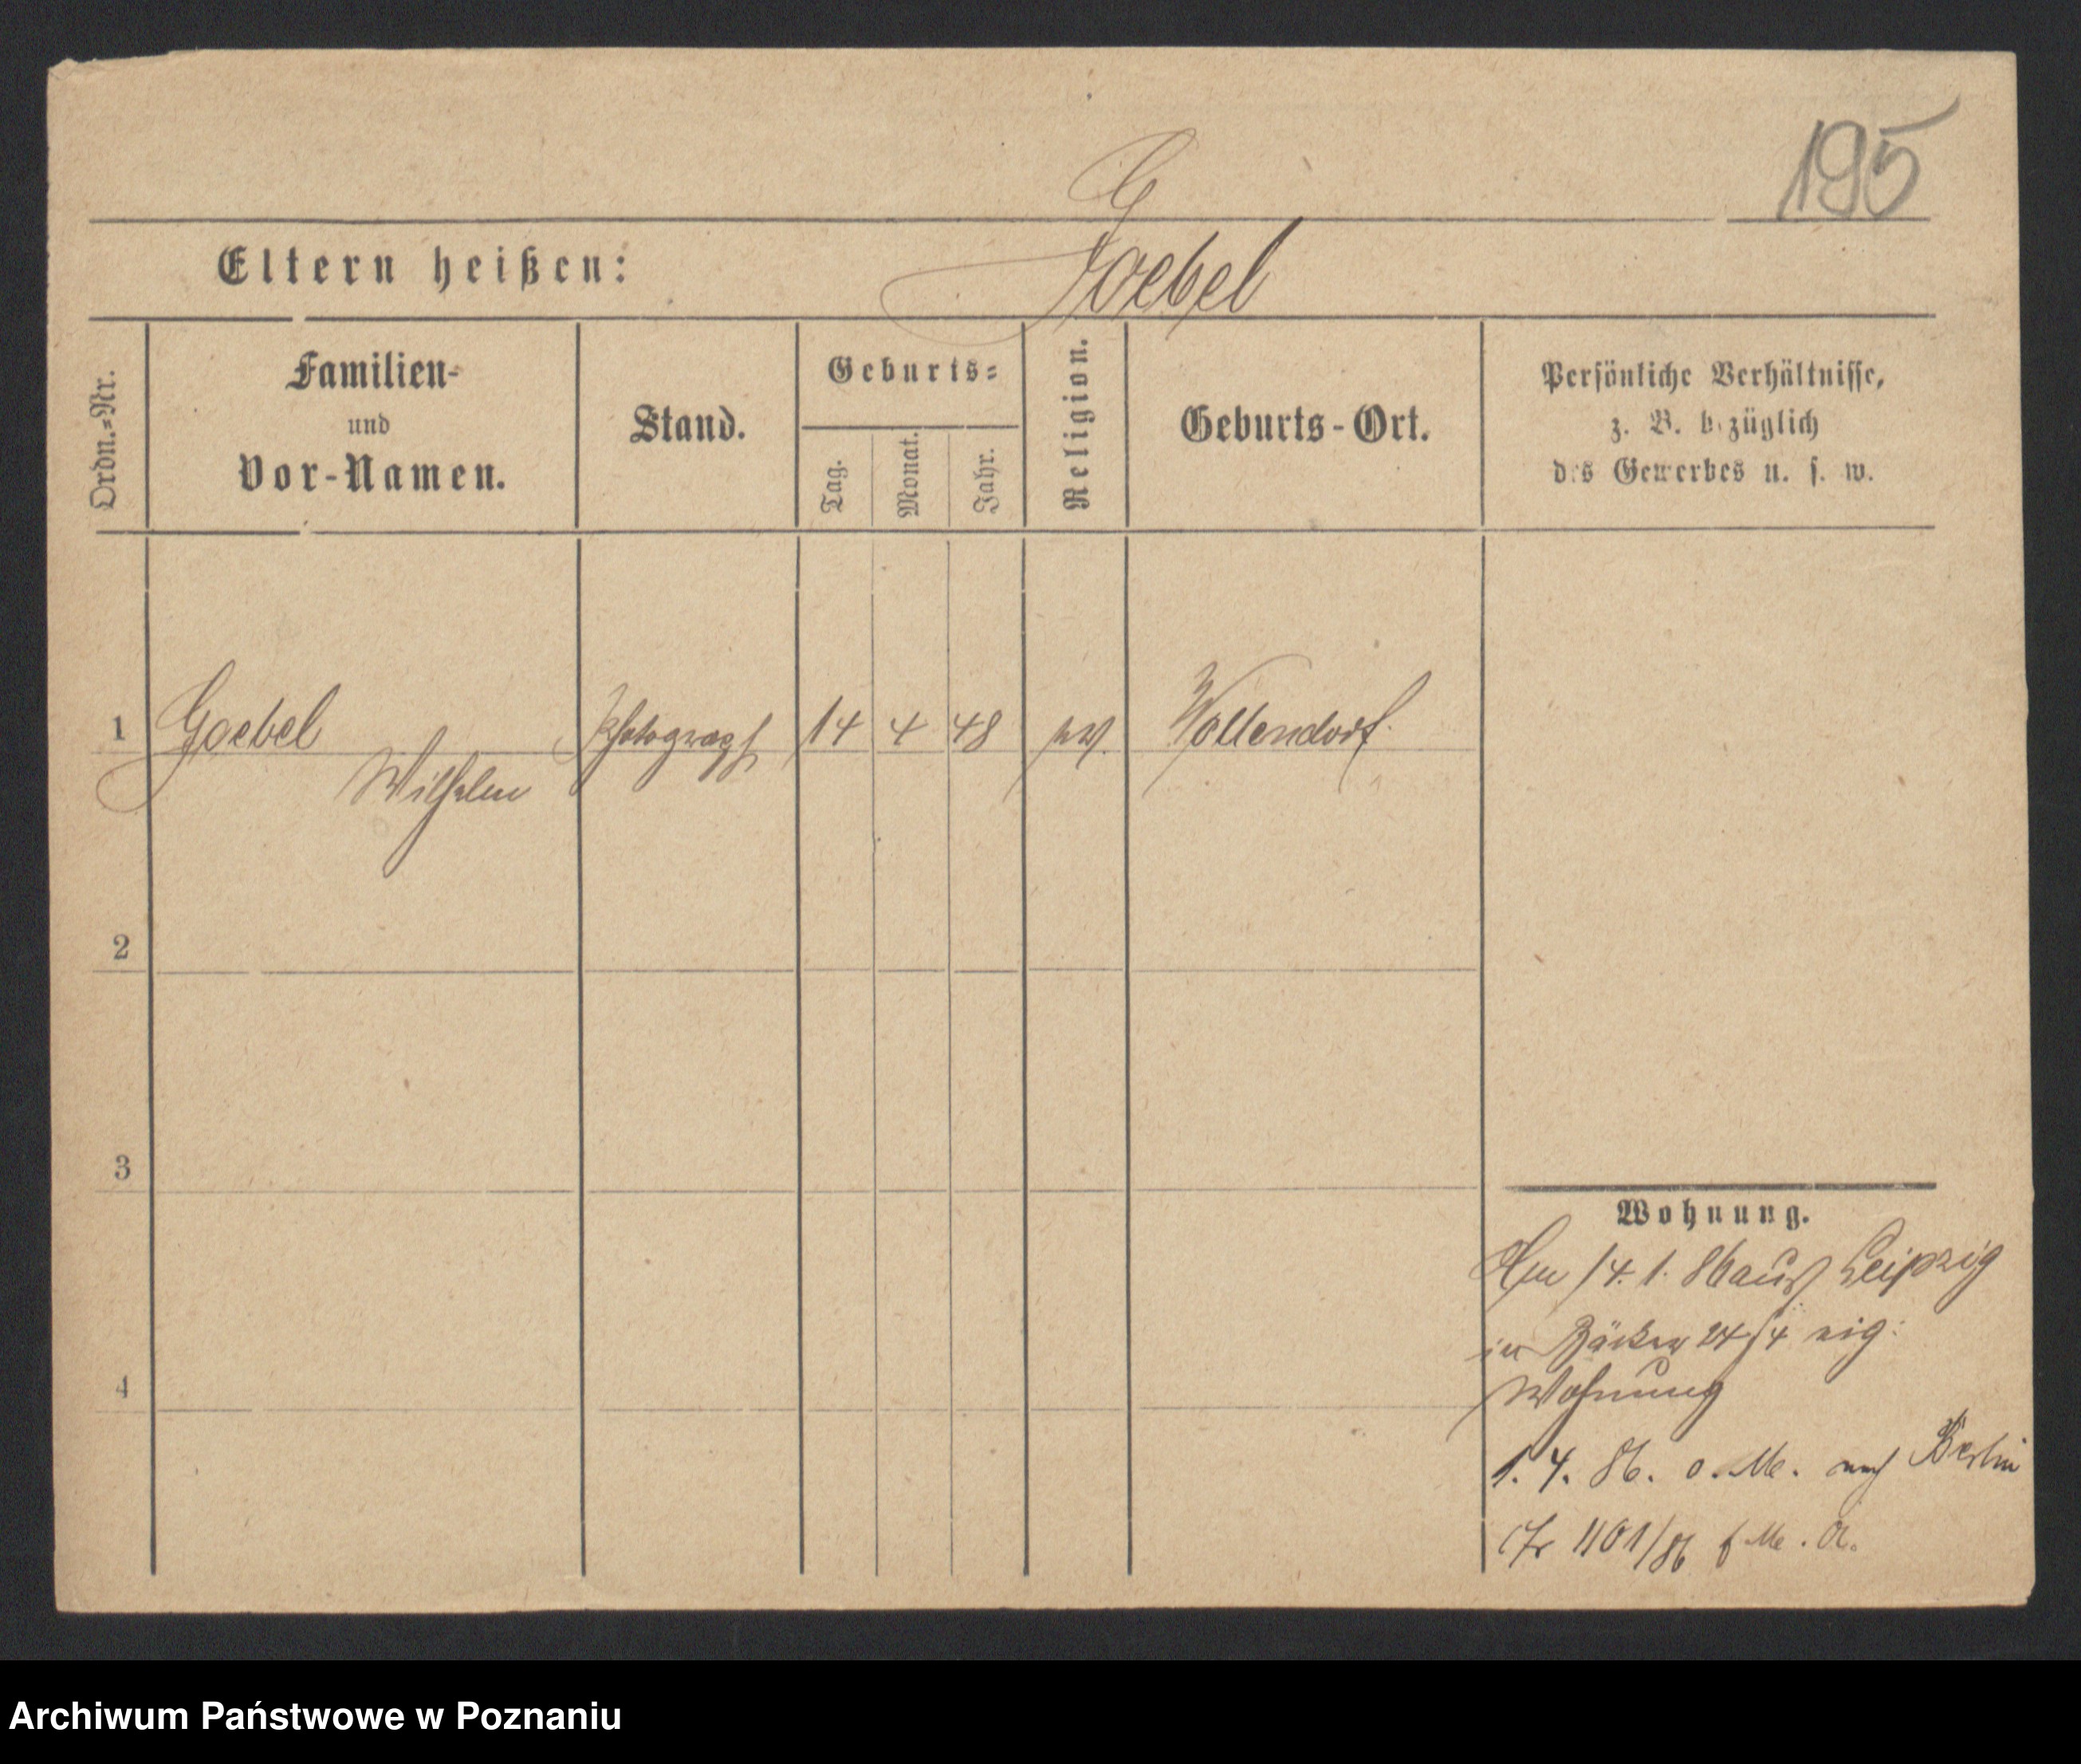 195
G
Goebel
Eltern heißen:
Ordn.=Nr.
Familien-
und
Vor-Namen.
Stand.
Geburts=
Tag.
Monat.
Jahr.
Religion.
Geburts-Ort.
Persönliche Verhältnisse,
z. B. bezüglich
des Gewerbes u. s. w.
1 Goebel Photograph 14 4 48 ev. Wollendorf.
Wilhelm
2
3
4
Wohnung.
Am 14. 1. 86 aus Leipzig
in Bäcker 24/4 eig:
Wohnung
1. 4. 86. o. M. nach Berlin
1101/86 M. A.
Archiwum Państwowe w Poznaniu